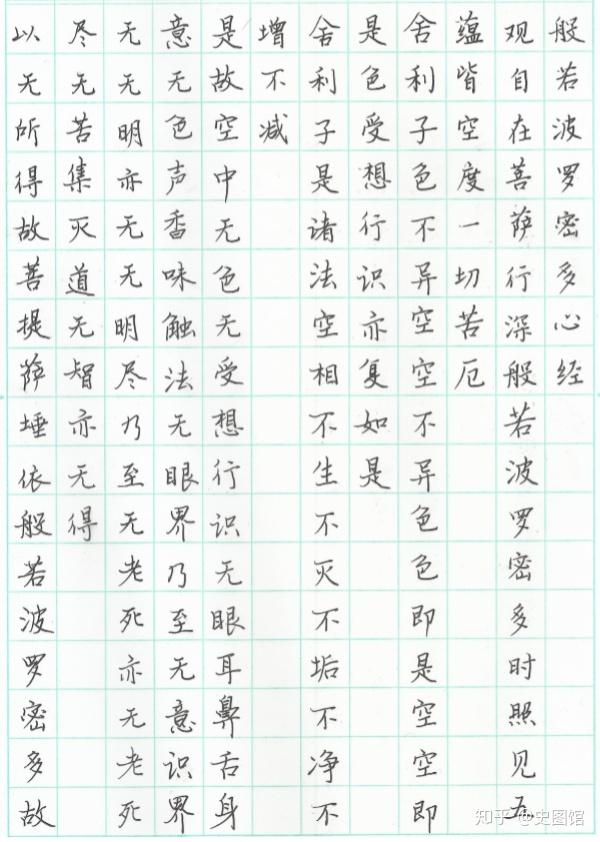 般若波罗密多心经
观自在菩萨行深般若波罗密多时照见五
蕴皆空度一切苦厄
舍利子色不异空空不异色色即是空空即
是色受想行识亦复如是
舍利子是诸法空相不生不灭不垢不净不
增不减
是故空中无色无受想行识无眼耳鼻舌身
意无色声香味触法无眼界乃至无意识界
无无明亦无无明尽乃至无老死亦无老死
尽无苦集灭道无智亦无得
以无所得故菩提萨埵依般若波罗密多故
知乎 @史图馆